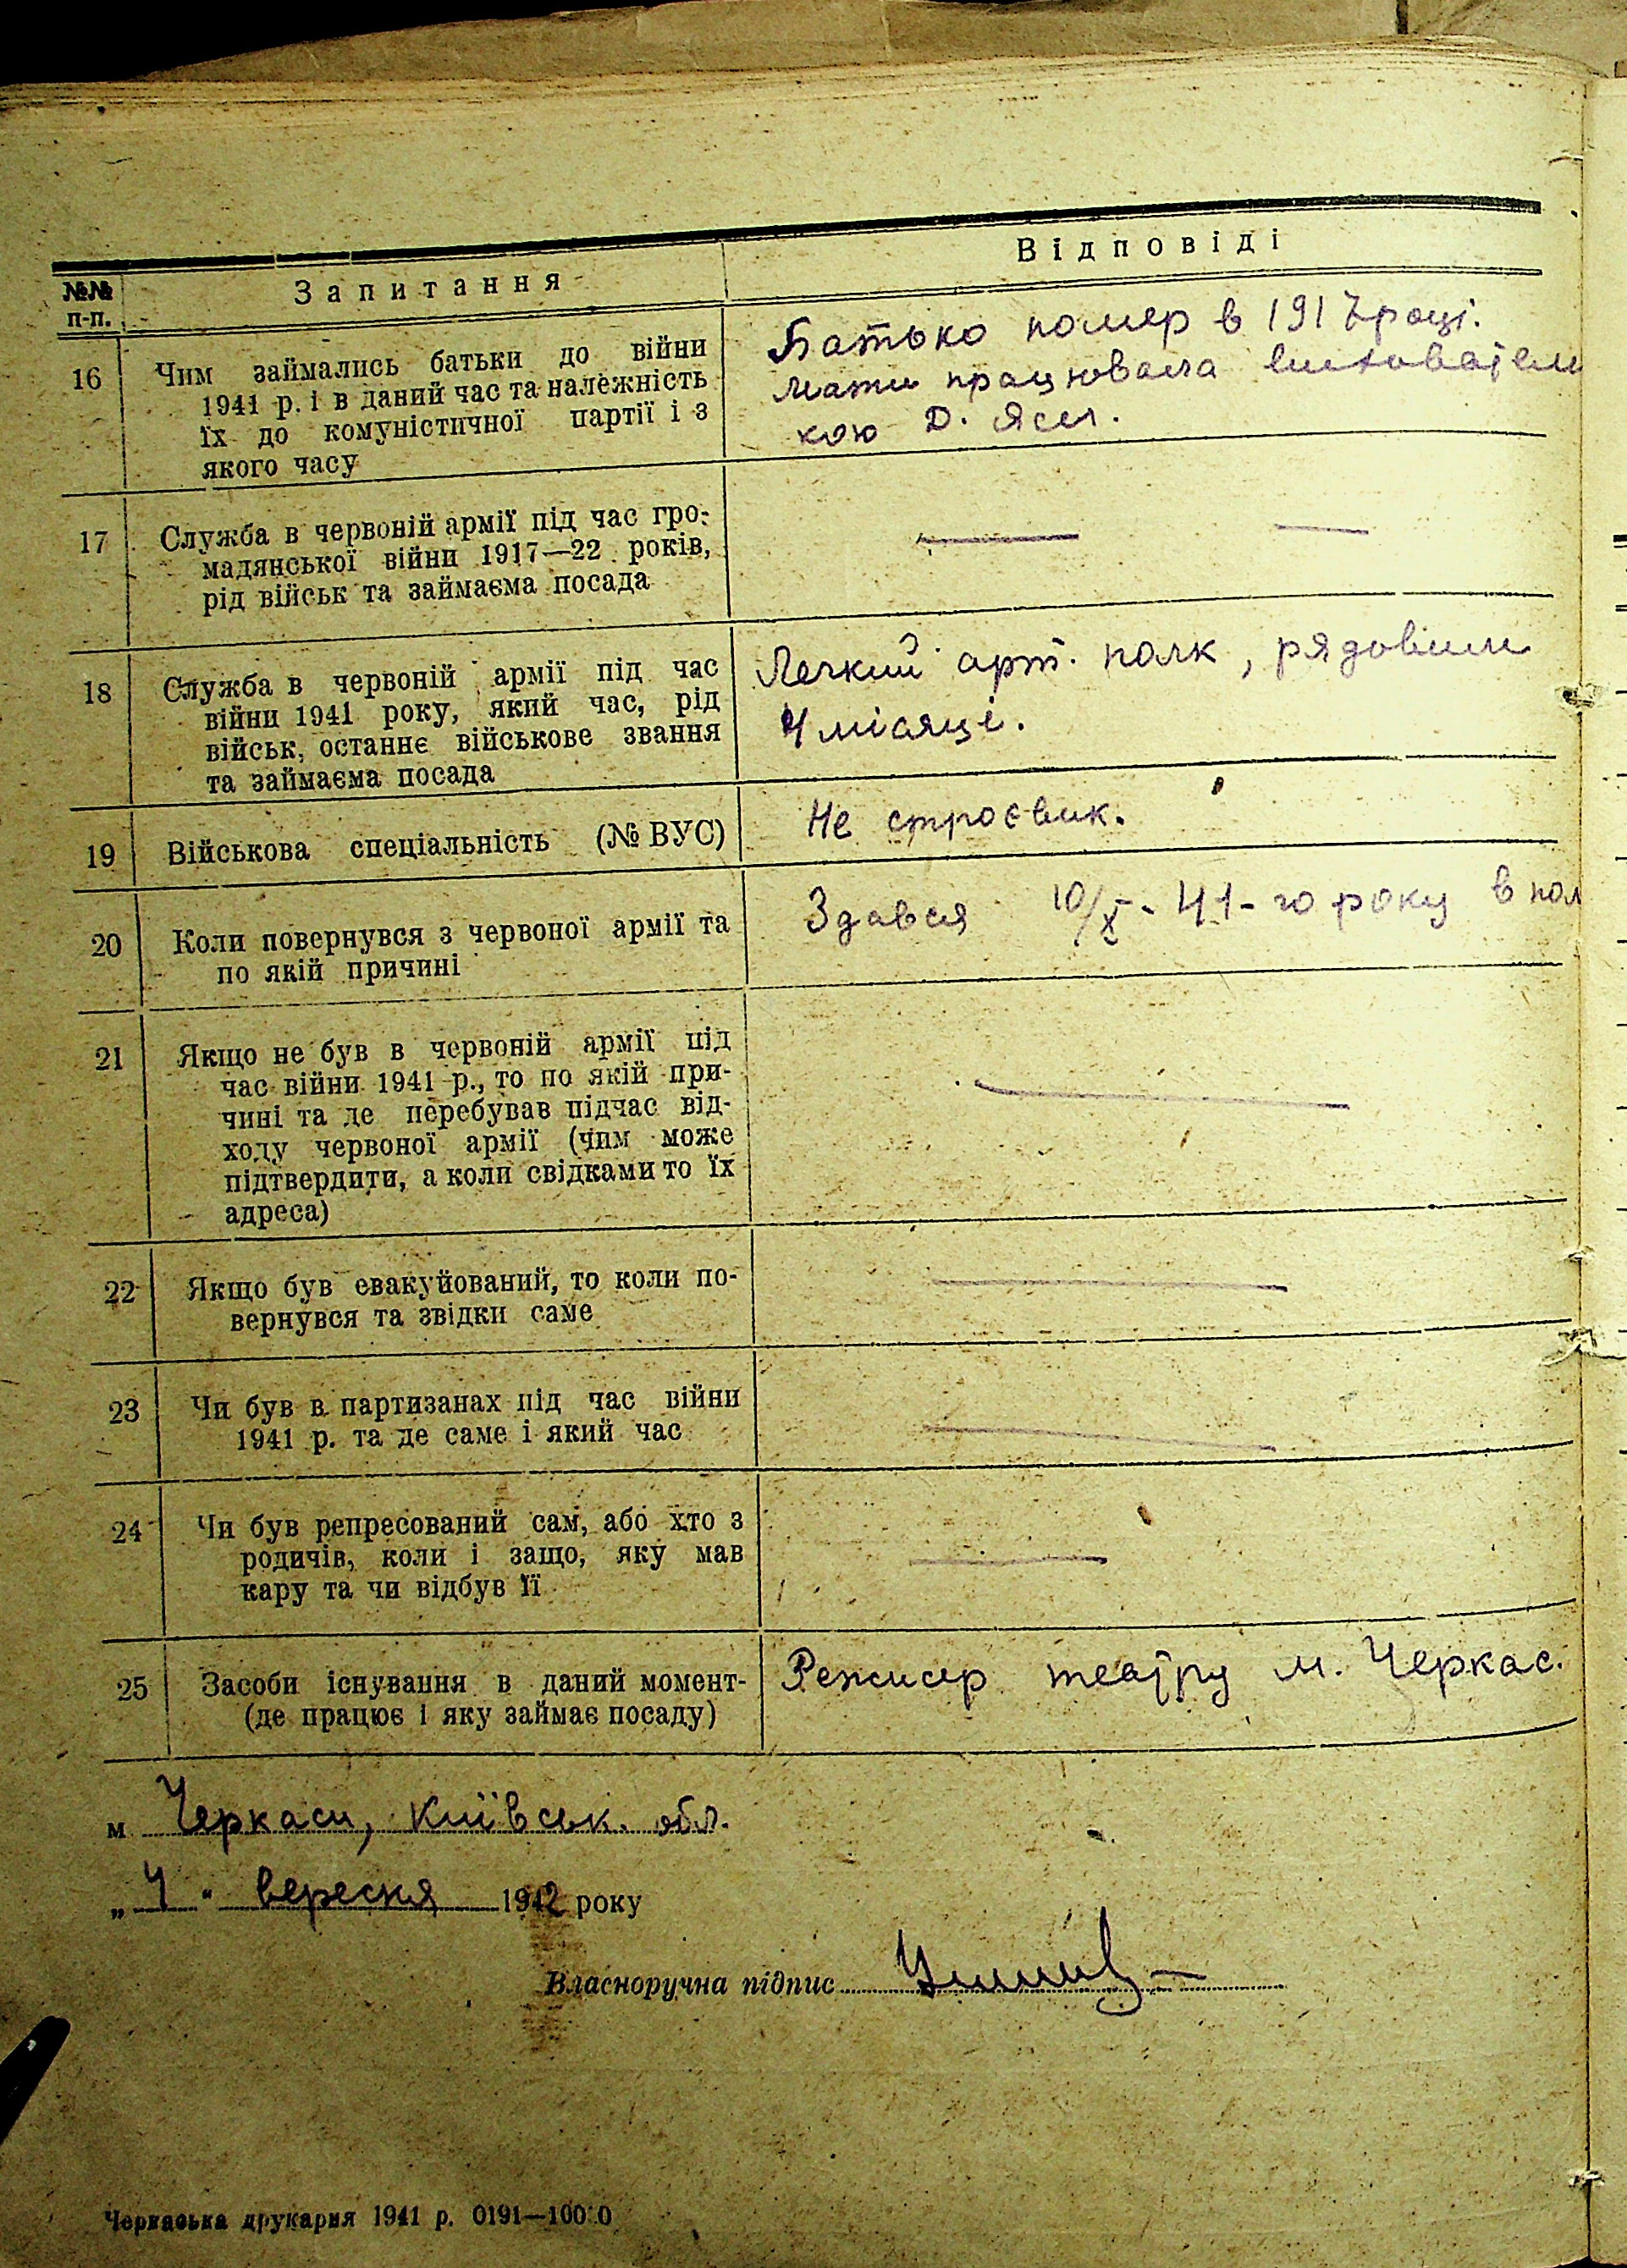 №№ п-п.
Запитання
Відповіді
16
Чим займались батьки до війни
1941 р. і в даний час та належність
їх до комуністичної партії і з
якого часу
Батько помер в 1917 році.
Мати працювала виховател
кою Д. Ясл.
17
Служба в червоній армії під час гро-
мадянської війни 1917—22 років,
рід військ та займаєма посада
— —
18
Служба в червоній армії під час
війни 1941 року, який час, рід
військ, останнє військове звання
та займаєма посада
Легкий арт. полк, рядовим
4 місяці.
19
Військова спеціальність (№ ВУС)
Не строєвик.
20
Коли повернувся з червоної армії та
по якій причині
Здався 10/X - 41-го року в пол
21
Якщо не був в червоній армії під
час війни 1941 р., то по якій при-
чині та де перебував підчас від-
ходу червоної армії (чим може
підтвердити, а коли свідками то їх
адреса)
—
22
Якщо був евакуйований, то коли по-
вернувся та звідки саме
—
23
Чи був в партизанах під час війни
1941 р. та де саме і який час
—
24
Чи був репресований сам, або хто з
родичів, коли і защо, яку мав
кару та чи відбув її
—
25
Засоби існування в даний момент-
(де працює і яку займає посаду)
Режисер театру м. Черкас.
м Черкаси, Київськ. обл.
„4" вересня 1942 року
Власноручна підпис
Черкаська друкарня 1941 р. 0191—100 0